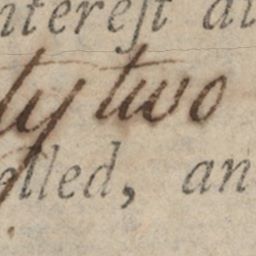 ntereſt at
ty two
elled, an